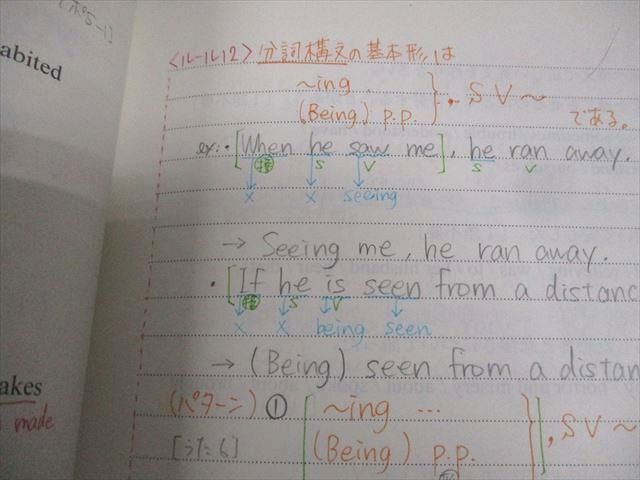 abited
akes
made
<ルール12> 分詞構文の基本形は
~ing
(Being) p.p.
}, S V ~
である。
ex:・[When he saw me], he ran away.
接 S V S V
× × seeing
→ Seeing me, he ran away.
・[If he is seen from a distanc
接 S V
× × being seen
→ (Being) seen from a distan
(パターン) ① [~ing …
(Being) p.p.
}], S V ~